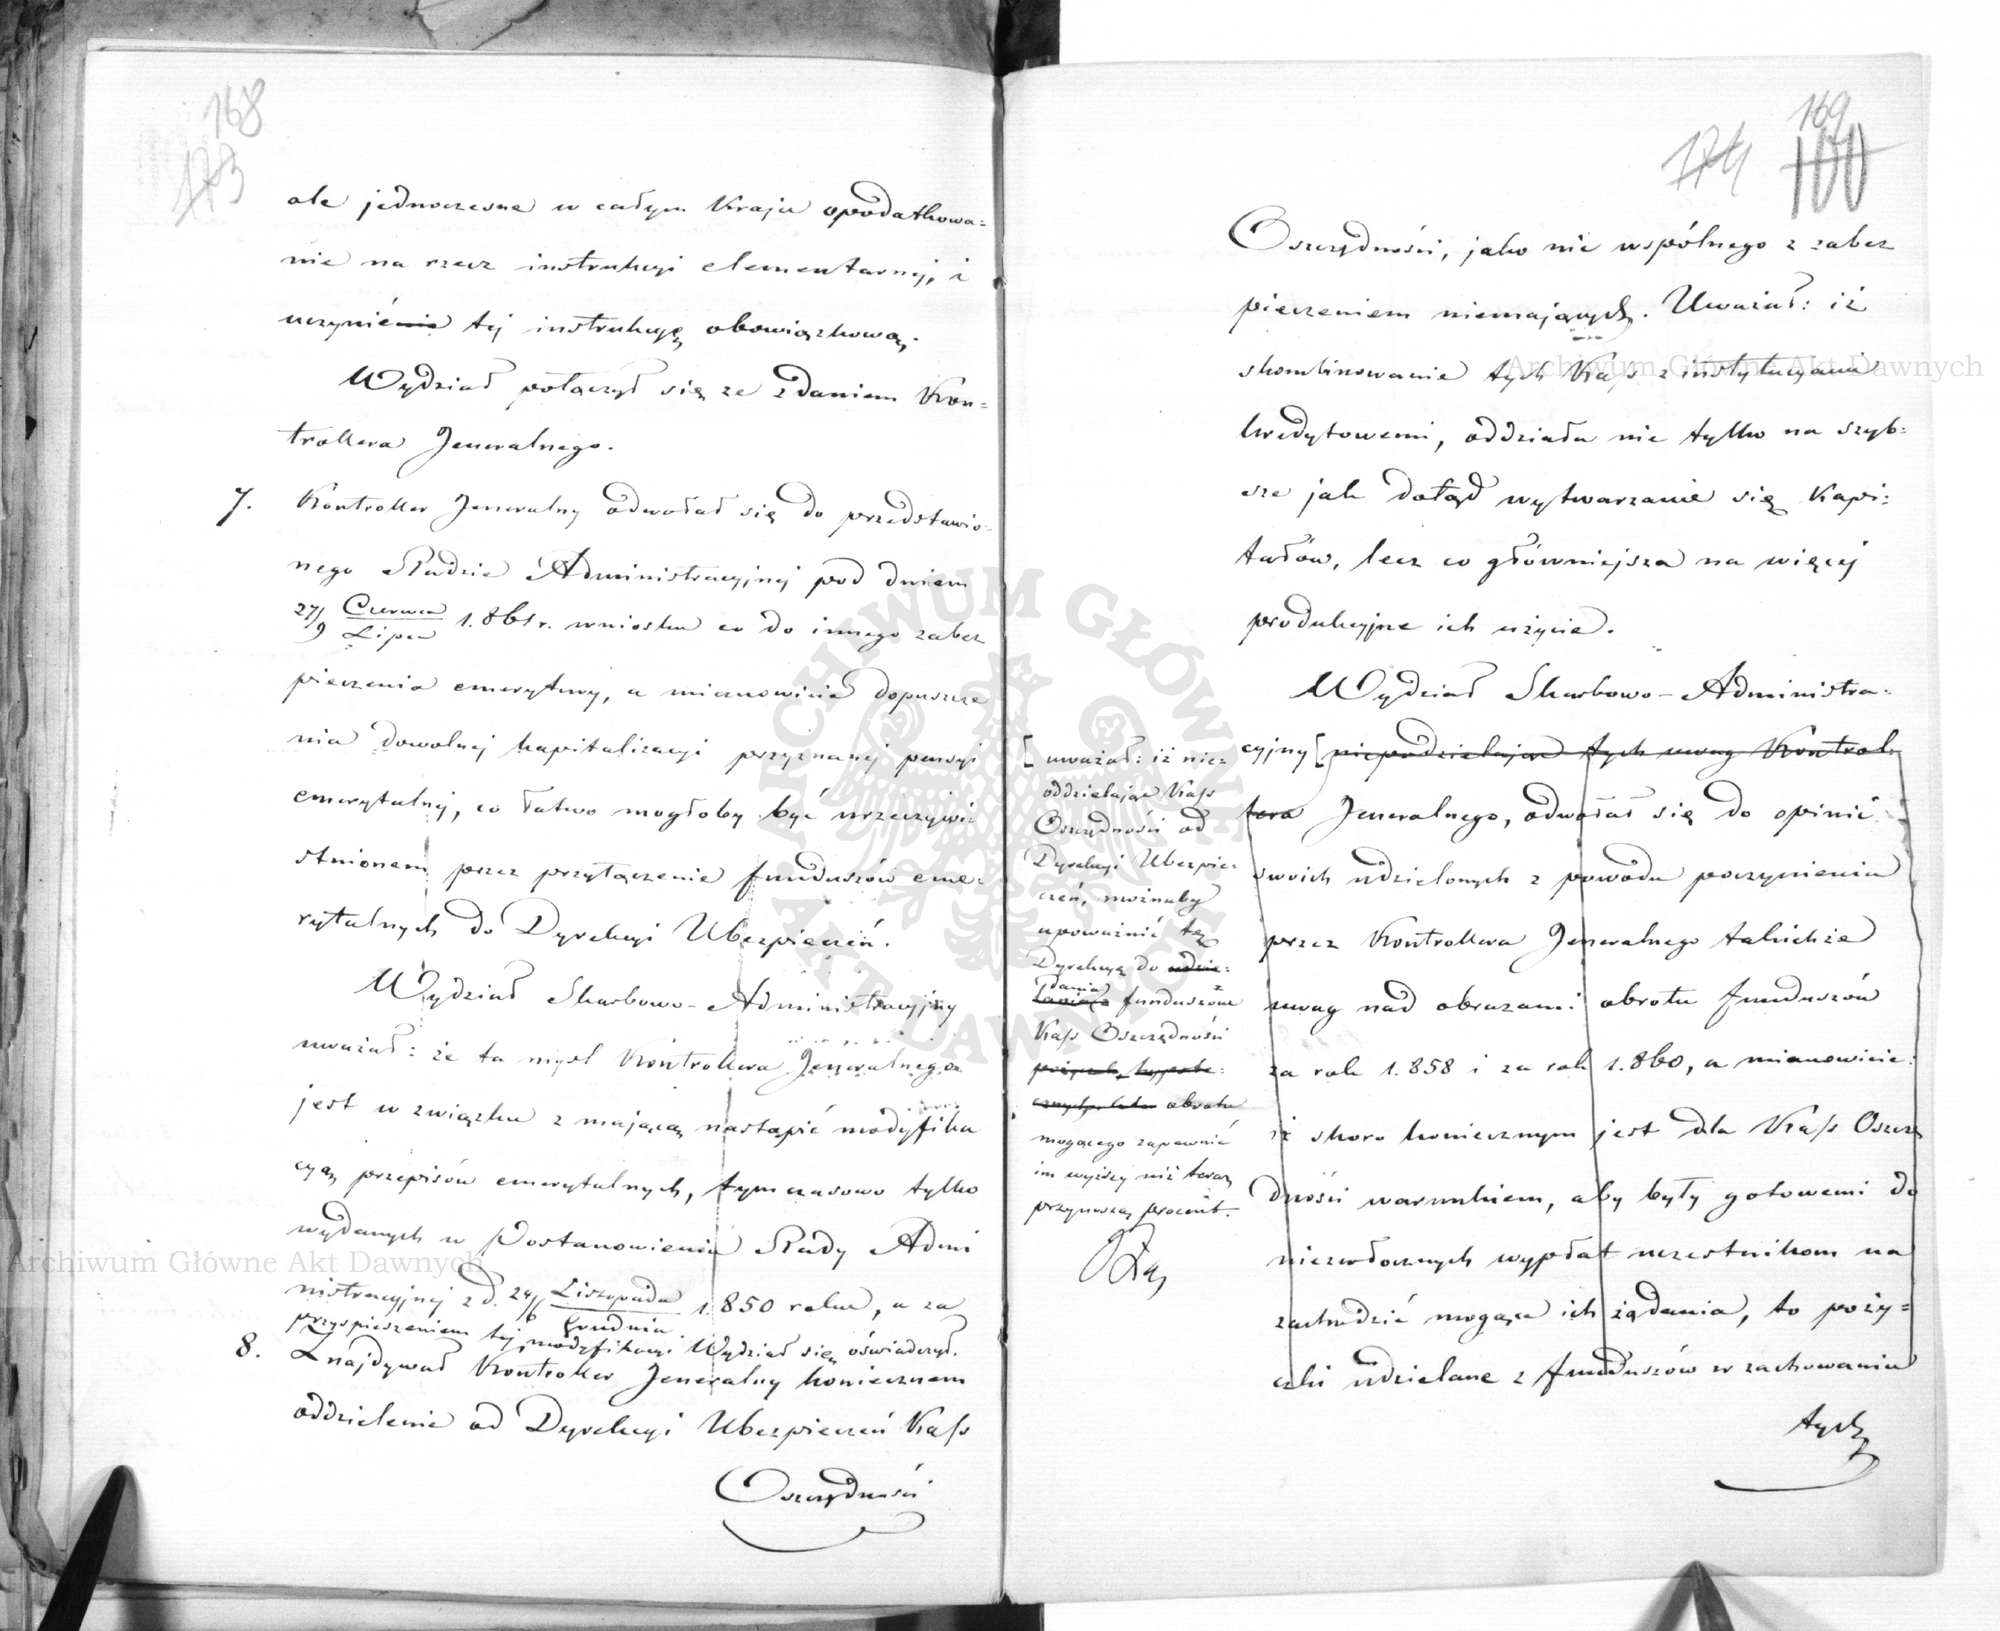 168
173
ale jednoczesne w całym Kraju opodatkowa=
nie na rzecz instrukcyi elementarnej, i
uczynienie tej instrukcyę obowiązkową.
Wydział połączył się ze zdaniem Kon=
trollera Jeneralnego.
7. Kontroller Jeneralny odwołał się do przedstawio=
nego Radzie Administracyjnej pod dniem
27/9 Czerwca/Lipca 1.861 r. wniosku co do innego zabez
pieczenia emerytury, a mianowicie dopuszcze
nia dowolnej kapitalizacyi przyznanej pensyi
emerytalnej, co łatwo mogłoby być urzeczywi=
stnionem przez przyłączenie funduszów eme=
rytalnych do Dyrekcyi Ubezpieczeń.
Wydział Skarbowo-Administracyjny
uważał: że ta myśl Kontrollera Jeneralnego
jest w związku z mającą nastąpić modyfika
cyą przepisów emerytalnych, tymczasowo tylko
wydanych w Postanowieniu Rady Admi
nistracyjnej z d. 24/6 Listopada/Grudnia 1.850 roku, a za
przyspieszeniem tej modyfikacyi Wydział się oświadczył.
8. Znajdywał Kontroller Jeneralny koniecznem
oddzielenie od Dyrekcyi Ubezpieczeń Kass
Oszczędności
169
174 100
Oszczędności, jako nic wspólnego z zabez
pieczeniem niemających. Uważał: iż
skombinowanie tych Kass z instytucyami
kredytowemi, oddziała nie tylko na szyb=
sze jak dotąd wytwarzanie się Kapi=
tałów, lecz co główniejsza na więcej
produkcyjne ich użycie.
Wydział Skarbowo-Administra=
cyjny [niepodzielając tych uwag Kontrol=
lera Jeneralnego, odwołał się do opinii
swoich udzielonych z powodu poczynienia
przez Kontrollera Jeneralnego takichże
uwag nad obrazami obrotu funduszów
za rok 1.858 i za rok 1.860, a mianowicie:
iż skoro koniecznym jest dla Kass Oszczę
dności warunkiem, aby były gotowemi do
niezwłocznych wypłat uczestnikom na
zachodzić mogące ich żądania, to poży=
czki udzielane z funduszów w zachowaniu
tych
[uważał: iż nie
oddzielając Kass
Oszczędności od
Dyrekcyi Ubezpie=
czeń, możnaby
upoważnić tę
Dyrekcyę do udzie=
dania
lania z funduszów
Kass Oszczędności
pożyczek hypote=
cznych, lub obrotu
mogącego zapewnić
im wyższy niż teraz
przynoszą procent.